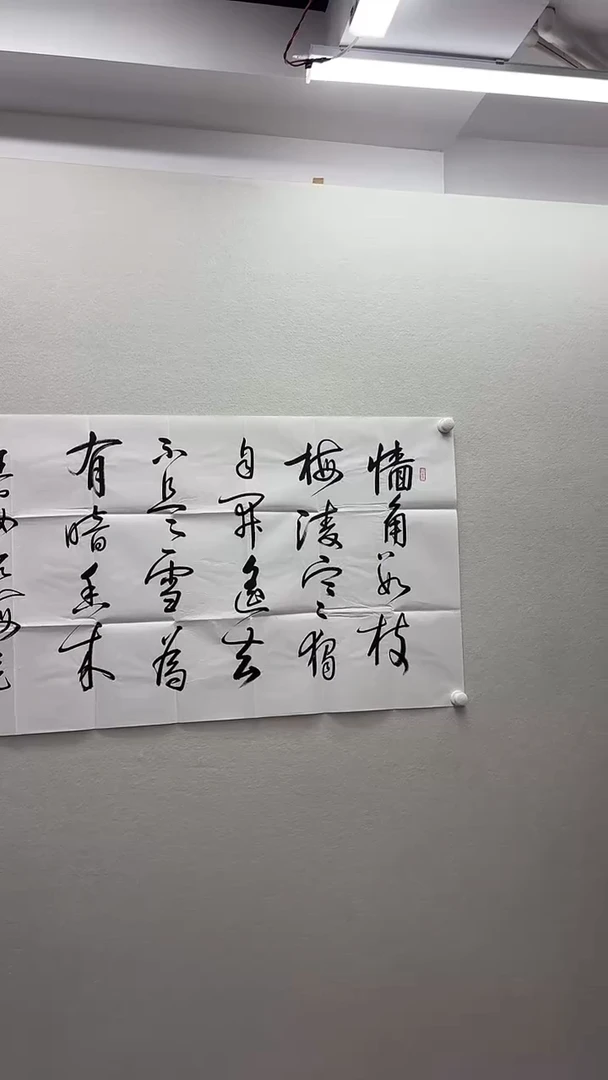 墙角数枝
梅凌寒獨
自開遥知
不是雪為
有暗香来